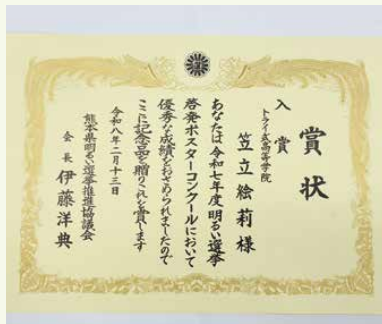 賞状
入賞
トライ式高等学院
笠立絵莉様
あなたは令和七年度明るい選挙
啓発ポスターコンクールにおいて
優秀な成績をおさめられましたので
ここに記念品を贈りこれを賞します
令和八年二月十三日
熊本県明るい選挙推進協議会
会長 伊藤洋典